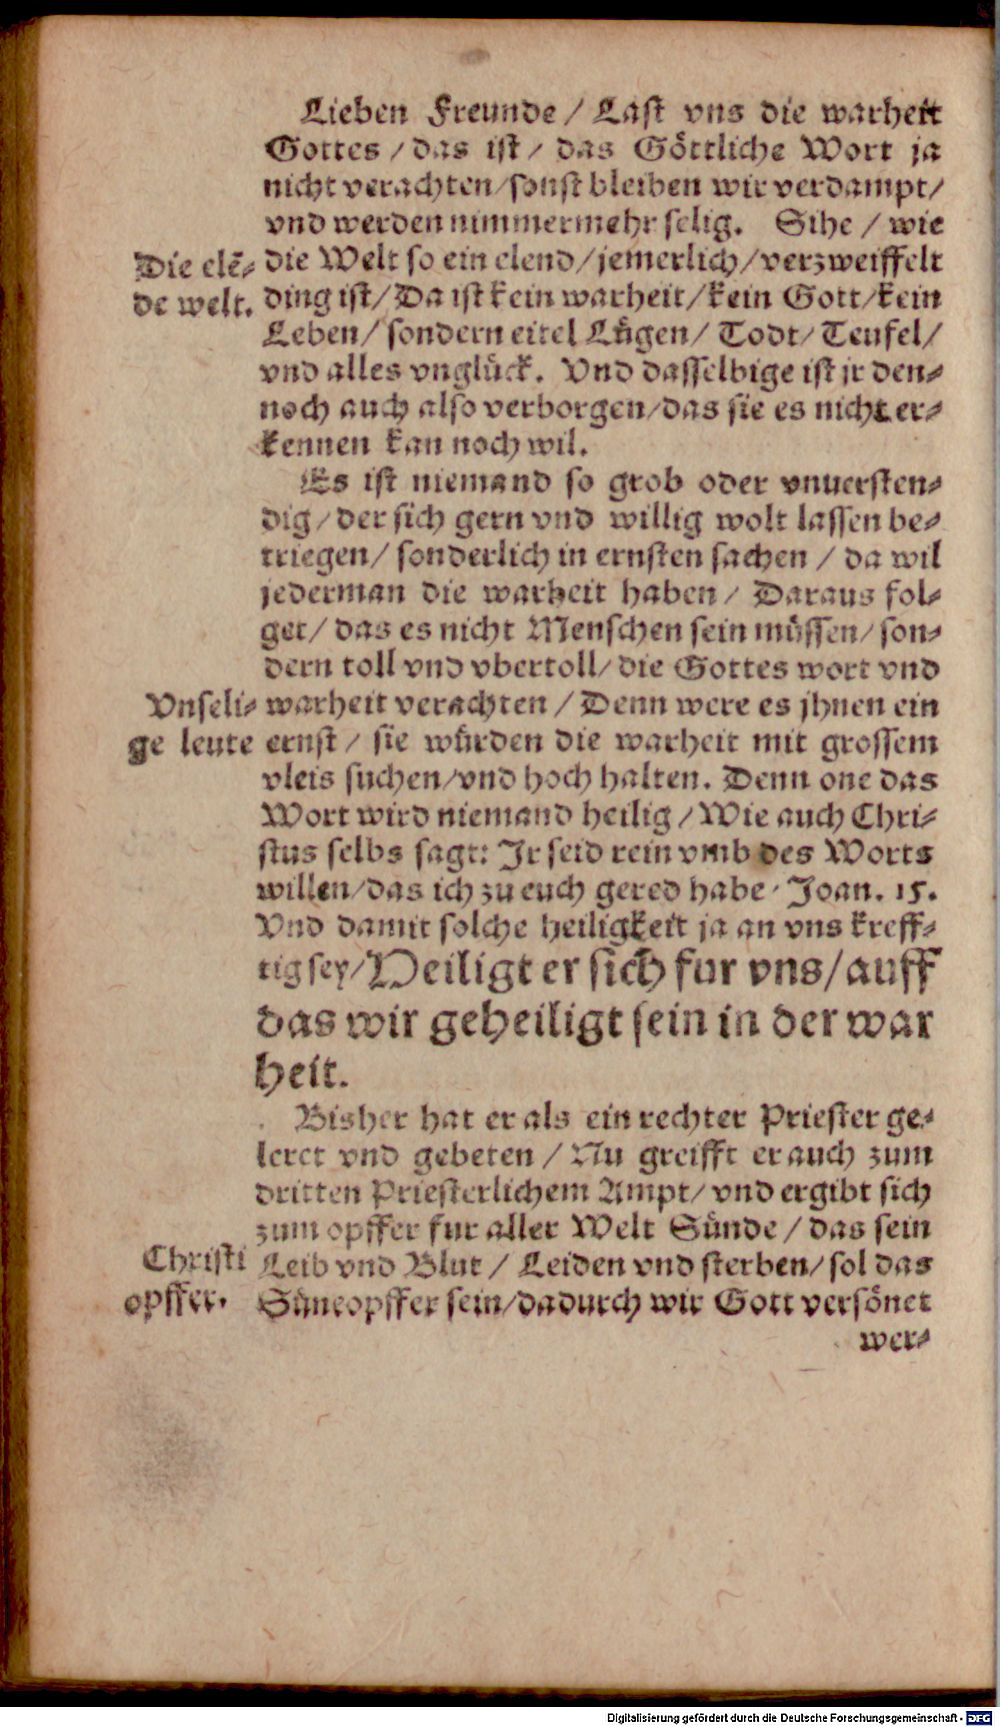 Lieben Freunde / Last vns die warheit
Gottes / das ist / das Göttliche Wort ja
nicht verachten / sonst bleiben wir verdampt /
vnd werden nimmermehr selig. Sihe / wie
Die elē-
de welt.
die Welt so ein elend / jemerlich / verzweiffelt
ding ist / Da ist kein warheit / kein Gott / kein
Leben / sondern eitel Lügen / Todt / Teufel /
vnd alles vnglück. Vnd dasselbige ist jr den-
noch auch also verborgen / das sie es nicht er-
kennen kan noch wil.
Es ist niemand so grob oder vnuersten-
dig / der sich gern vnd willig wolt lassen be-
triegen / sonderlich in ernsten sachen / da wil
jederman die warheit haben / Daraus fol-
get / das es nicht Menschen sein müssen / son-
dern toll vnd vbertoll / die Gottes wort vnd
Vnseli-
ge leute
warheit verachten / Denn were es jhnen ein
ernst / sie würden die warheit mit grossem
vleis suchen / vnd hoch halten. Denn one das
Wort wird niemand heilig / Wie auch Chri-
stus selbs sagt: Jr seid rein vmb des Worts
willen / das ich zu euch gered habe / Joan. 15.
Vnd damit solche heiligkeit ja an vns kreff-
tig sey / Heiligt er sich fur vns / auff
das wir geheiligt sein in der war
heit.
Bisher hat er als ein rechter Priester ge-
leret vnd gebeten / Nu greifft er auch zum
dritten Priesterlichem Ampt / vnd ergibt sich
zum opffer fur aller Welt Sünde / das sein
Christi
opffer.
Leib vnd Blut / Leiden vnd sterben / sol das
Süneopffer sein / dadurch wir Gott versönet
wer-
Digitalisierung gefördert durch die Deutsche Forschungsgemeinschaft - DFG